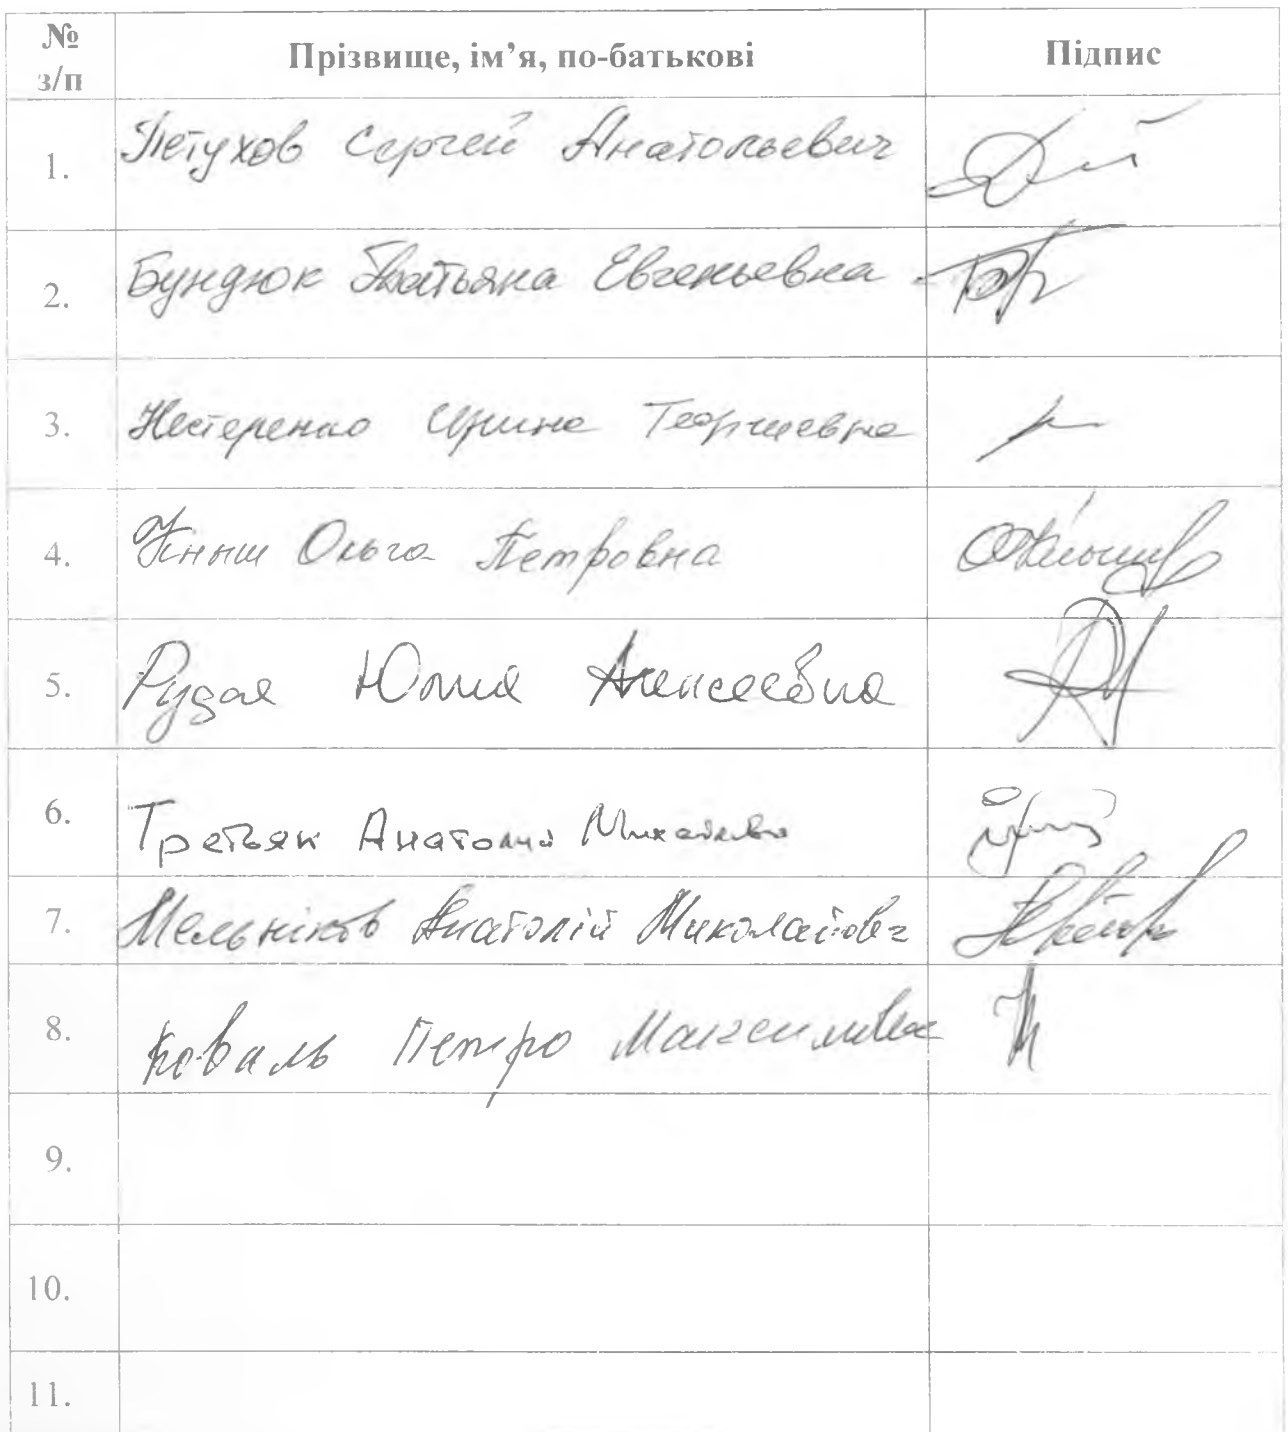 № з/п Прізвище, ім’я, по-батькові Підпис
1. Петухов Сергей Анатольевич
2. Бундюк Татьяна Евгеньевна
3. Нестеренко Ирина Георгиевна
4. Ольга Петровна
5. Рудая Юлия Алексеевна
6. Третьяк Анатолий
7. Мельніков Анатолій Миколайович
8. Коваль Петро Максимович
9.
10.
11.